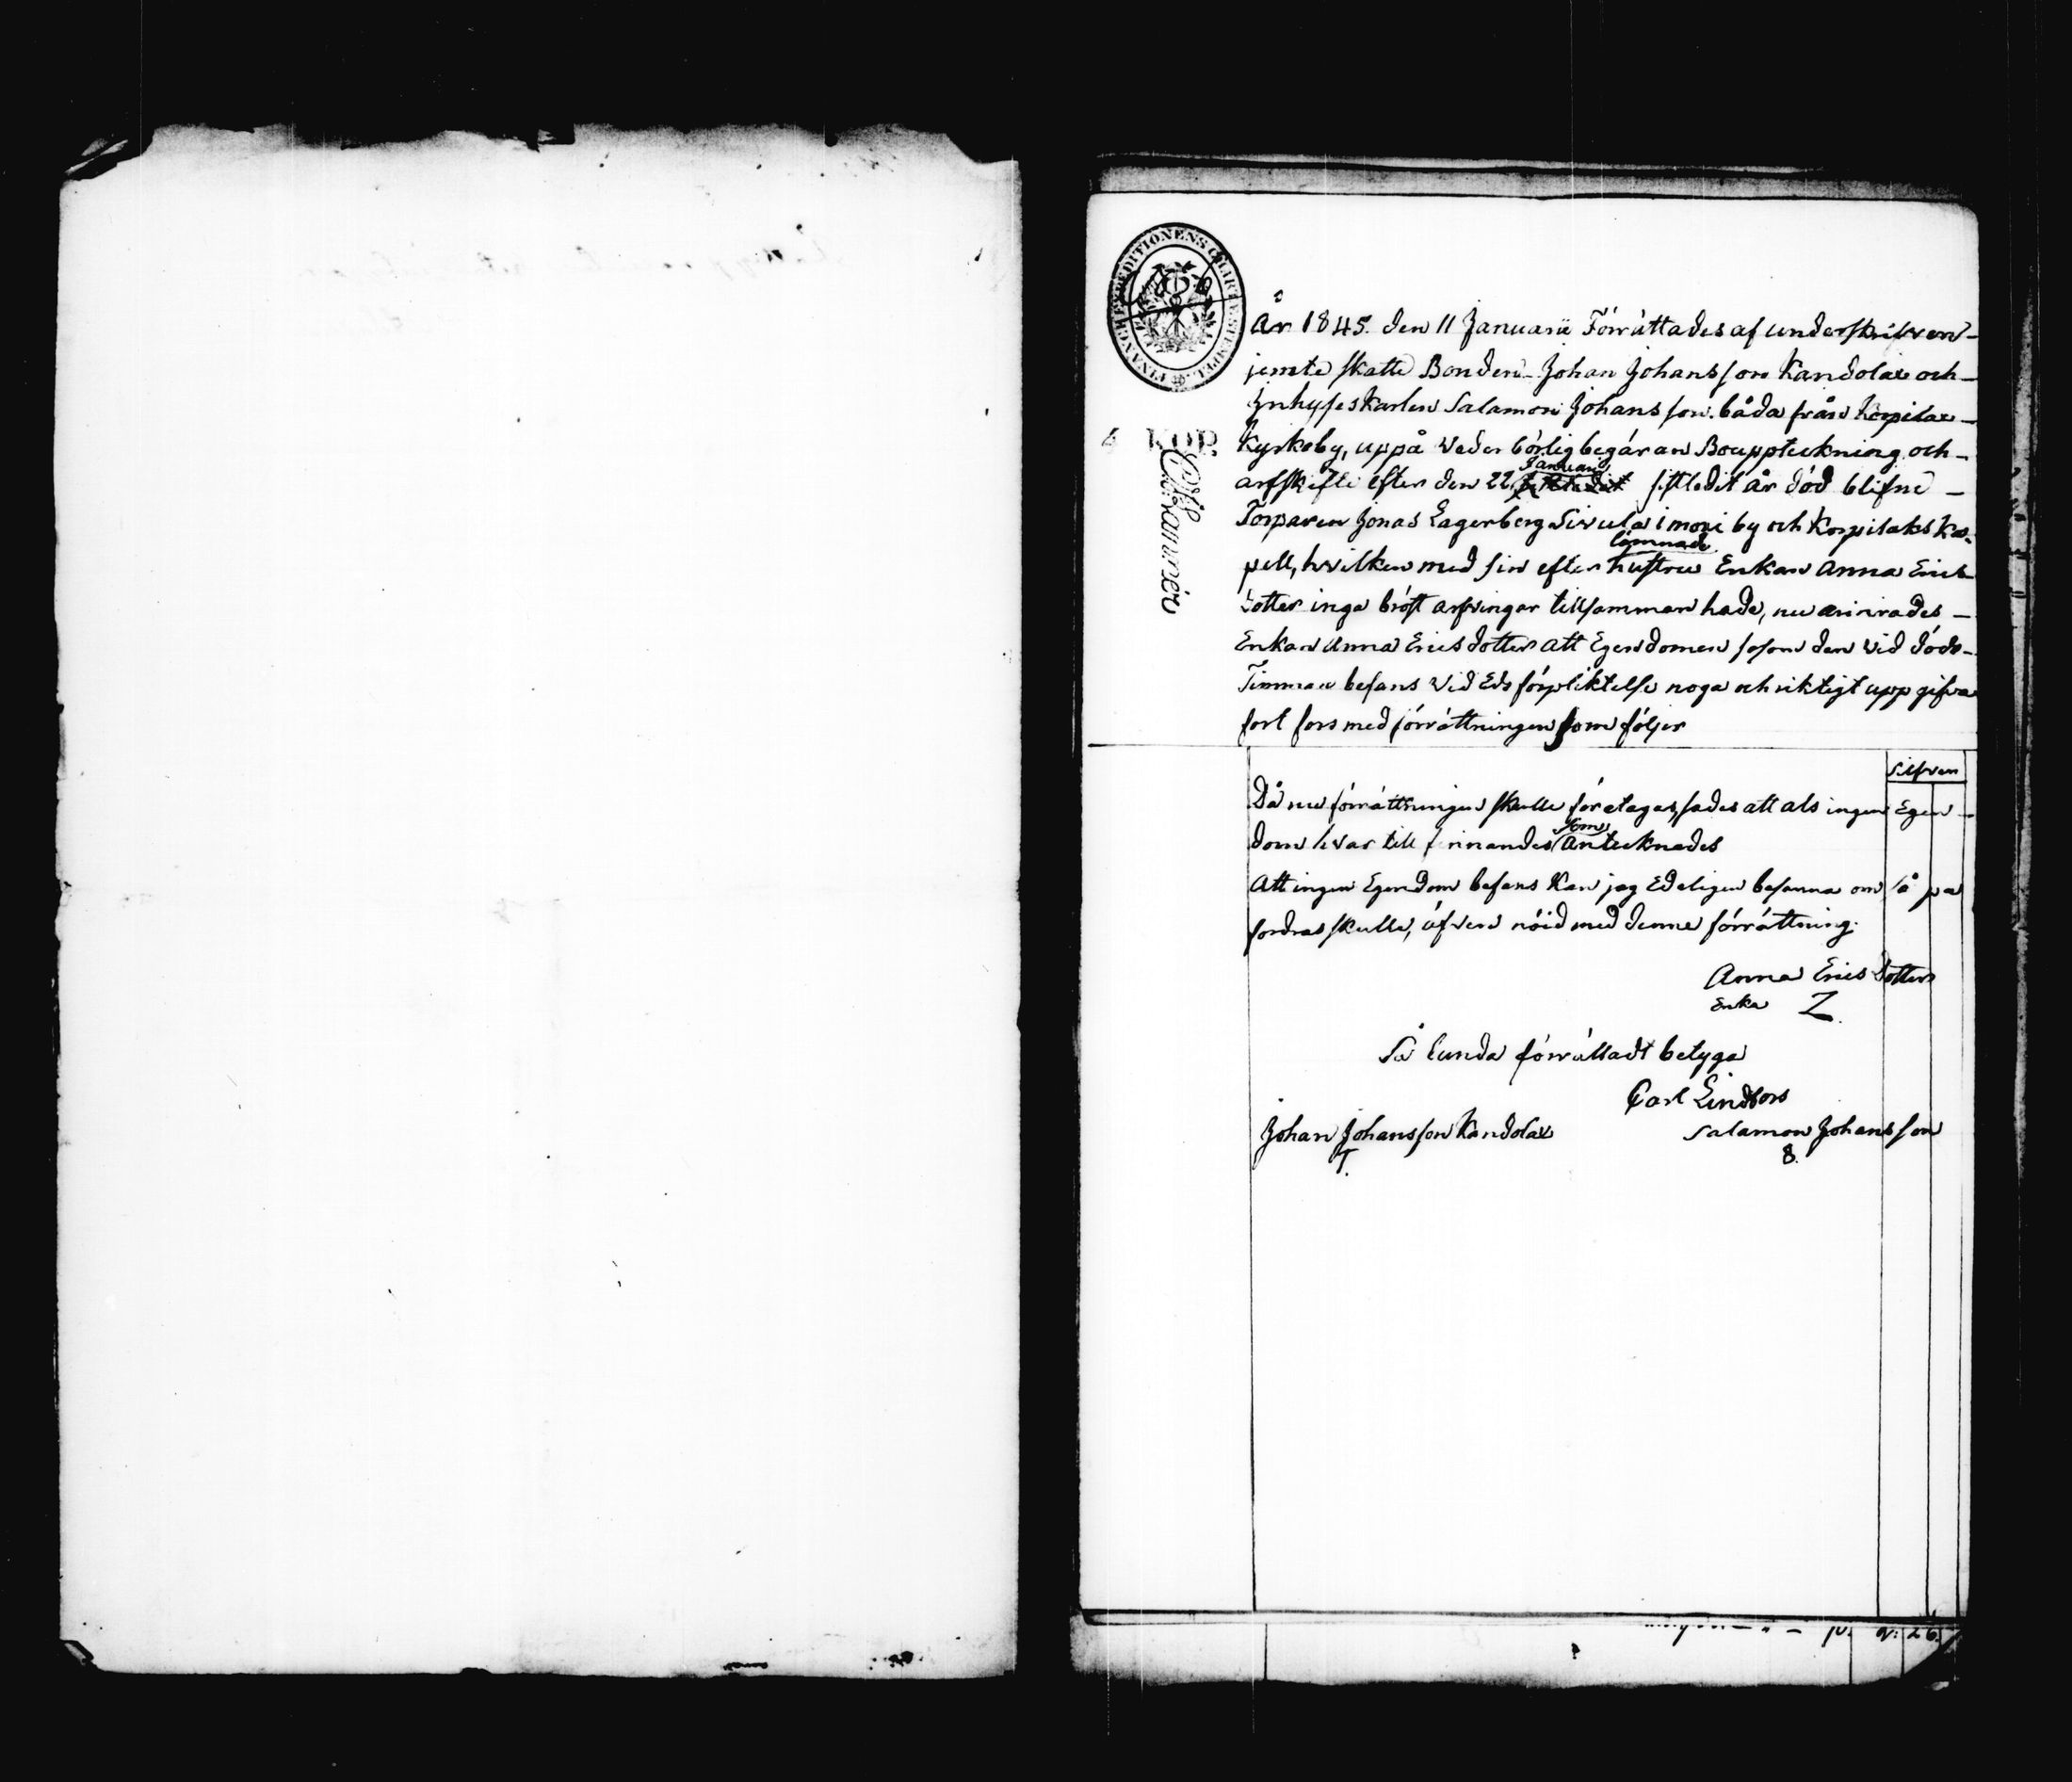 År 1845. den 11 Januarii Förrättades af underskrifven
jemte skatte Bonden Johan Johansson Kandolax och
Inhyses Karlen Salamon Johansson båda från Korpilax
Kyrkoby, uppå Veder börlig begäran Bouppteckning och
arfskifte efter den 22 Januarii sistledit år död blifne
Torparen Jonas Lagerberg Sivula i moxi by och Korpilaks Ka-
pell, hvilken med sin efter lämnade hustru Enkan Anna Erics
dotter inga bröst arfvingar tillsamman hade, nu
Enkan Anna Ericsdotter att Egendomen sosom den vid döds
Timman befans vid Eds förpliktelse noga och riktigt uppgifva
fort fors med förrättningen som följer
Silfver
Då nu förrättningen skulle företagas, sades att als ingen Egen
dom hvar till finnandes som Antecknades
Att ingen Egendom befans Kan jag Edeligen besanna om så på
fordras skulle, äfven nöid med denne förrättning.
Anna Ericsdotter
Enka Z
Så lunda förrättadt betyga
Carl Lindfors
Johan Johansson Kandolax Salamon Johansson
T. 8.
FINANCE EXPEDITIONENS CHARTÆ STEMPEL
6 KOP.